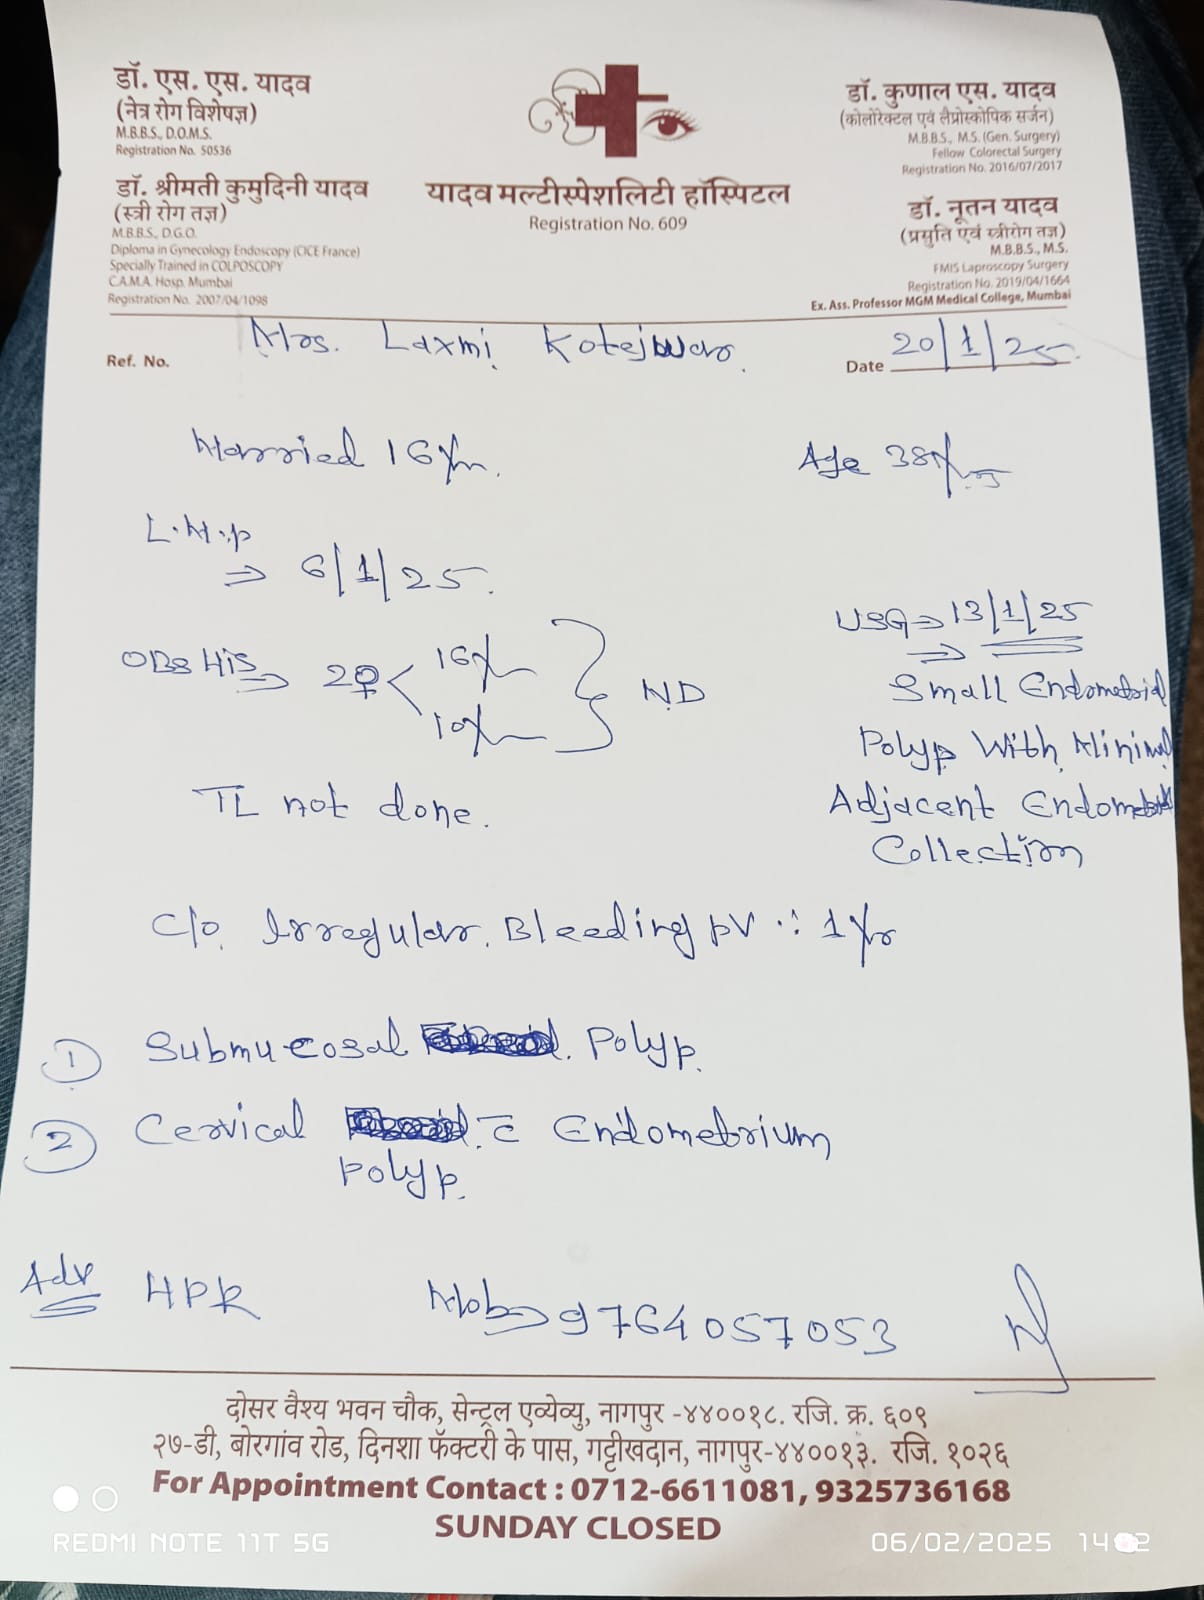 डॉ. एस. एस. यादव
(नेत्र रोग विशेषज्ञ)
M.B.B.S., D.O.M.S.
Registration No. 50536
डॉ. श्रीमती कुमुदिनी यादव
(स्त्री रोग तज्ञ)
M.B.B.S., D.G.O.
Diploma in Gynecology Endoscopy (CICE France)
Specially Trained in COLPOSCOPY
C.A.M.A. Hosp. Mumbai
Registration No. 2007/04/1098
यादव मल्टीस्पेशलिटी हॉस्पिटल
Registration No. 609
डॉ. कुणाल एस. यादव
(कोलोरेक्टल एवं लैप्रोस्कोपिक सर्जन)
M.B.B.S., M.S. (Gen. Surgery)
Fellow Colorectal Surgery
Registration No. 2016/07/2017
डॉ. नूतन यादव
(प्रसुति एवं स्त्रीरोग तज्ञ)
M.B.B.S., M.S.
FMIS Laproscopy Surgery
Registration No. 2019/04/1664
Ex. Ass. Professor MGM Medical College, Mumbai
Ref. No. Mrs. Laxmi Kotejwar Date 20/1/25
Married 16 yrs. Age 38 yrs
L.M.P
⇒ 6/1/25.
USG ⇒ 13/1/25
OBS His ⇒ 2♀ < 16 yr
10 yr } ND
⇒ Small Endometrial
Polyp With Minimal
TL not done. Adjacent Endometrial
Collection
C/o Irregular Bleeding PV ∴ 1 yr
① Submucosal Polyp.
② Cervical c̄ Endometrium
Polyp.
Adv HPR Mob ⇒ 9764057053
दोसर वैश्य भवन चौक, सेन्ट्रल एव्येव्यु, नागपुर -४४००१८. रजि. क्र. ६०९
२७-डी, बोरगांव रोड, दिनशा फॅक्टरी के पास, गट्टीखदान, नागपुर-४४००१३. रजि. १०२६
For Appointment Contact : 0712-6611081, 9325736168
SUNDAY CLOSED
REDMI NOTE 11T 5G 06/02/2025